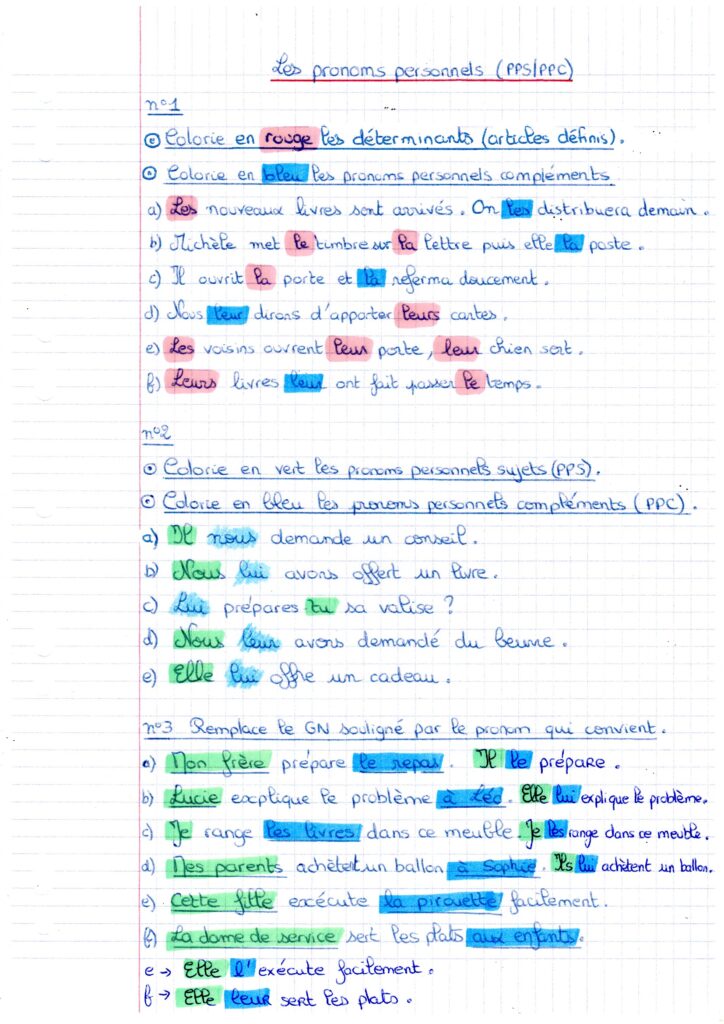 Les pronoms personnels (PPS/PPC)
n°1
Colorie en rouge les déterminants (articles définis).
Colorie en bleu les pronoms personnels compléments
a) Les nouveaux livres sont arrivés. On les distribuera demain.
b) Michèle met le timbre sur la lettre puis elle la poste.
c) Il ouvrit la porte et la referma doucement.
d) Nous leur dirons d'apporter leurs cartes.
e) Les voisins ouvrent leur porte, leur chien sort.
f) Leurs livres leur ont fait passer le temps.
n°2
Colorie en vert les pronoms personnels sujets (PPS).
Colorie en bleu les pronoms personnels compléments (PPC).
a) Il nous demande un conseil.
b) Nous lui avons offert un livre.
c) Lui prépares tu sa valise ?
d) Nous leur avons demandé du beurre.
e) Elle lui offre un cadeau.
n°3 Remplace le GN souligné par le pronom qui convient.
a) Mon frère prépare le repas. Il le prépare.
b) Lucie explique le problème à Léo. Elle lui explique le problème.
c) Je range les livres dans ce meuble. Je les range dans ce meuble.
d) Mes parents achètent un ballon à Sophie. Ils lui achètent un ballon.
e) Cette fille exécute la pirouette facilement.
f) La dame de service sert les plats aux enfants.
e → Elle l'exécute facilement.
f → Elle leur sert les plats.